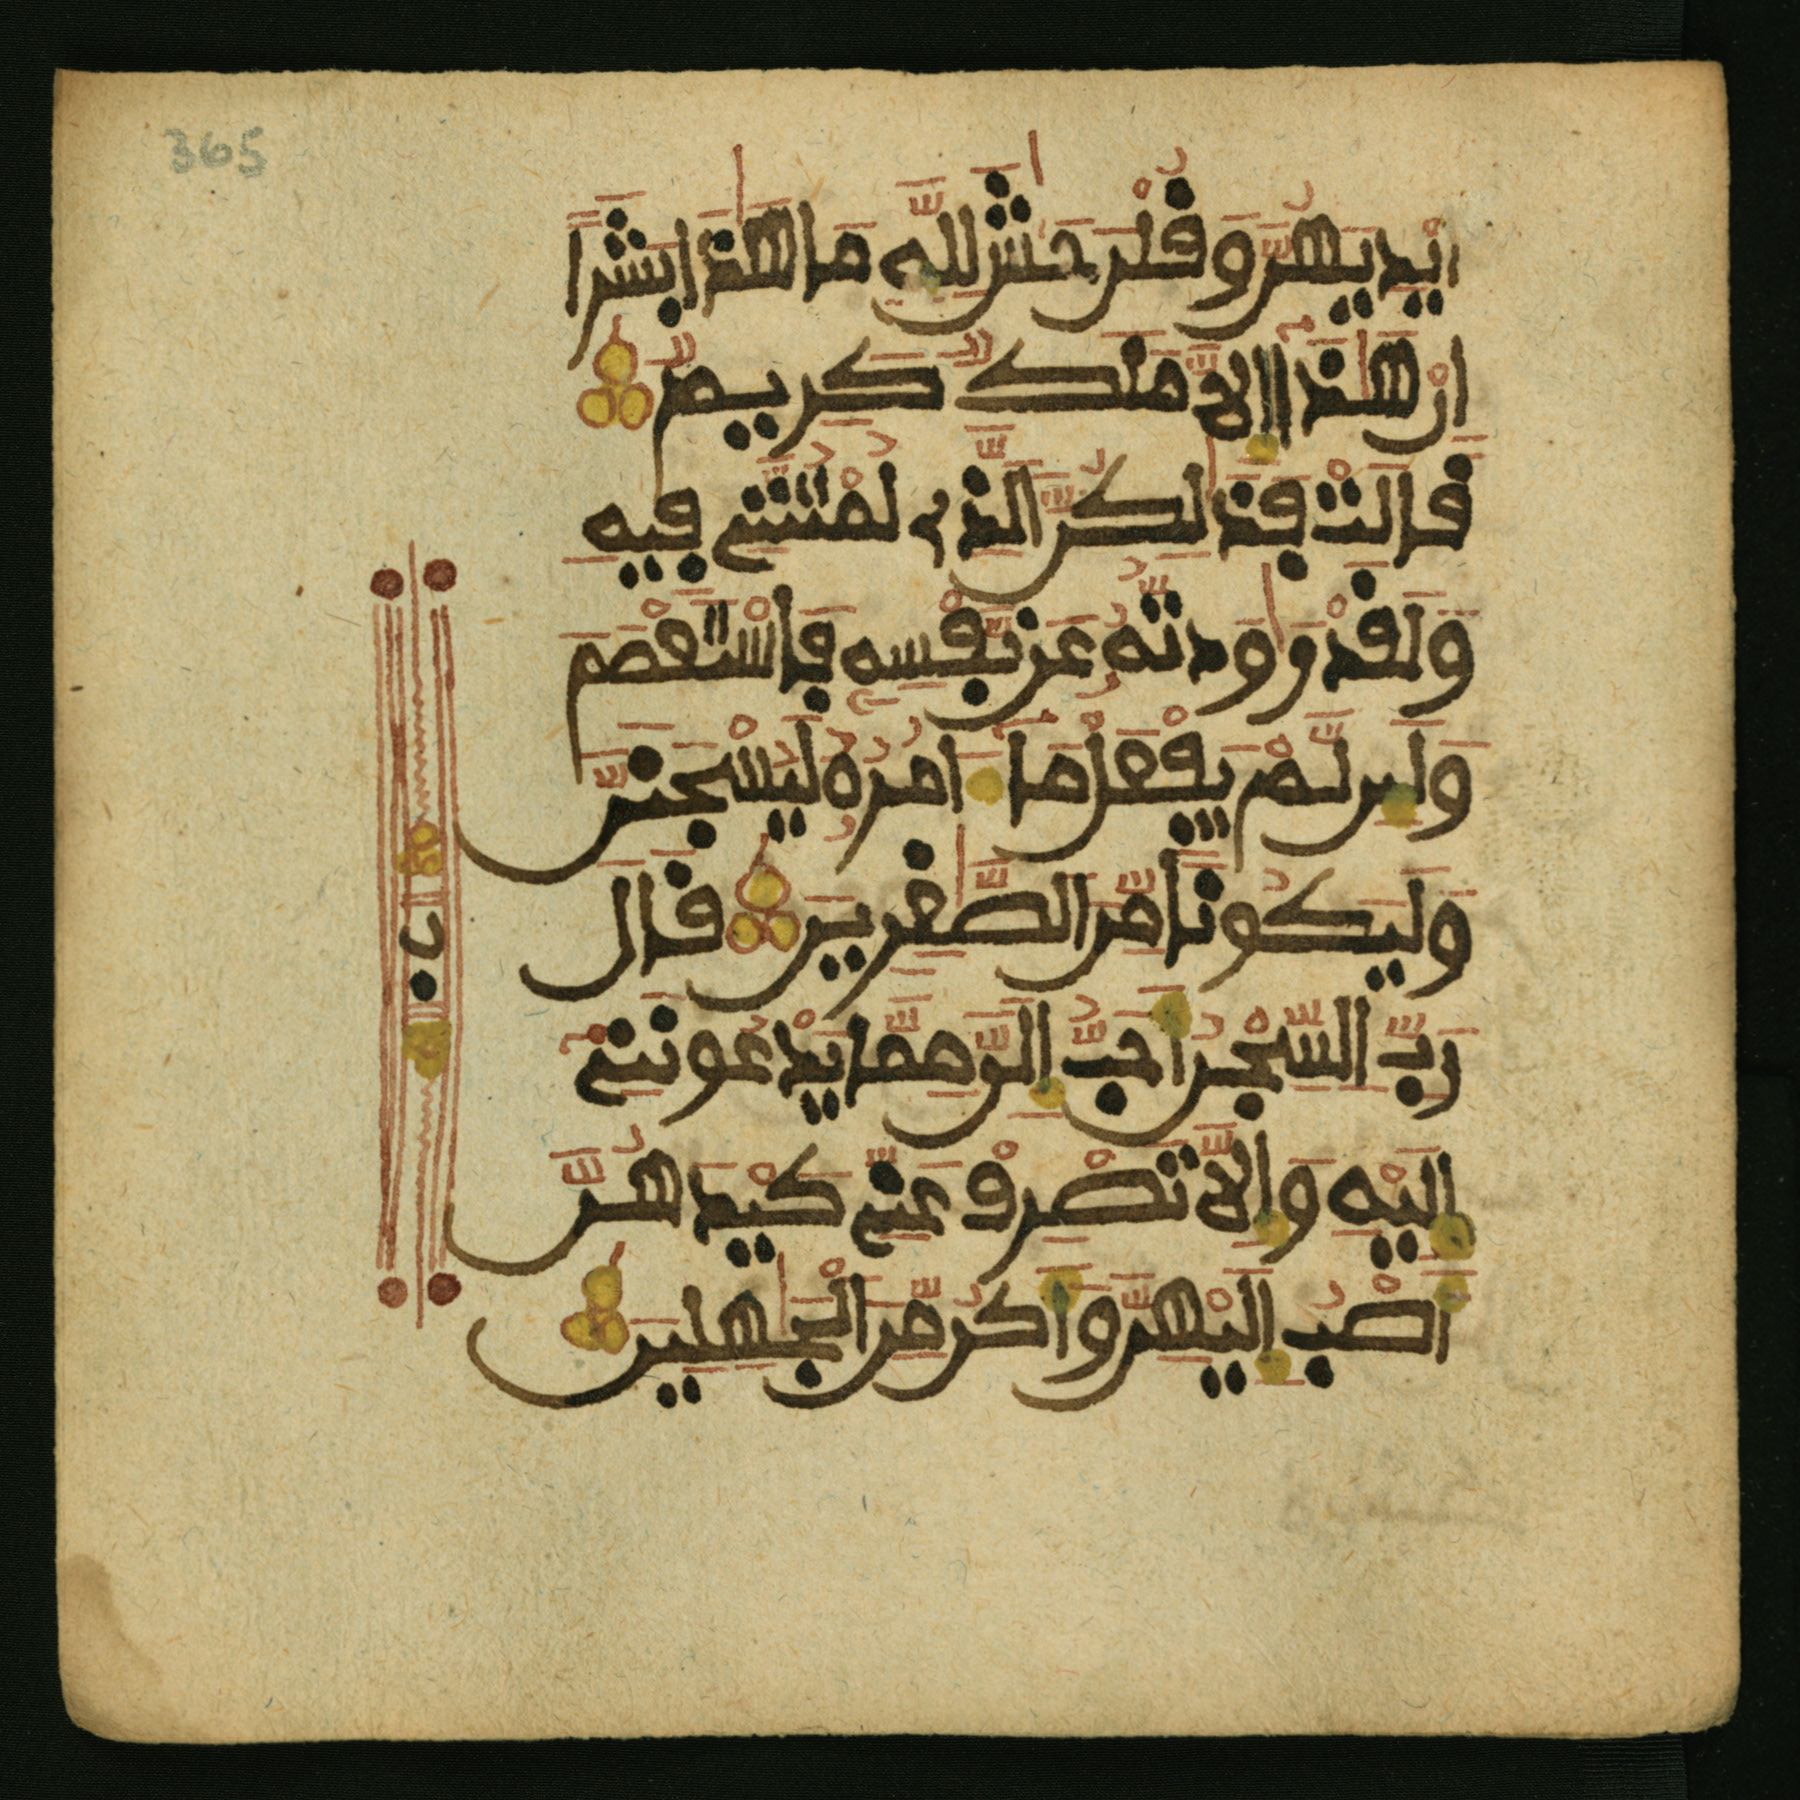 365
اَيْدِيَهُنَّ وَقُلْنَ حَٰشَ لِلَّهِ مَا هَٰذَا بَشَرًا
اِنْ هَٰذَآ اِلَّا مَلَكٌ كَرِيمٌ
قَالَتْ فَذَٰلِكُنَّ الَّذِے لُمْتُنَّنِے فِيهِ
وَلَقَدْ رَٰوَدتُّهُۥ عَن نَّفْسِهِۦ فَاسْتَعْصَمَ
وَلَئِن لَّمْ يَفْعَلْ مَآ ءَامُرُهُۥ لَيُسْجَنَنَّ
وَلَيَكُونًا مِّنَ الصَّٰغِرِينَ قَالَ
رَبِّ السِّجْنُ أَحَبُّ إِلَيَّ مِمَّا يَدْعُونَنِے
إِلَيْهِ وَإِلَّا تَصْرِفْ عَنِّے كَيْدَهُنَّ
أَصْبُ إِلَيْهِنَّ وَأَكُن مِّنَ الْجَٰهِلِينَ